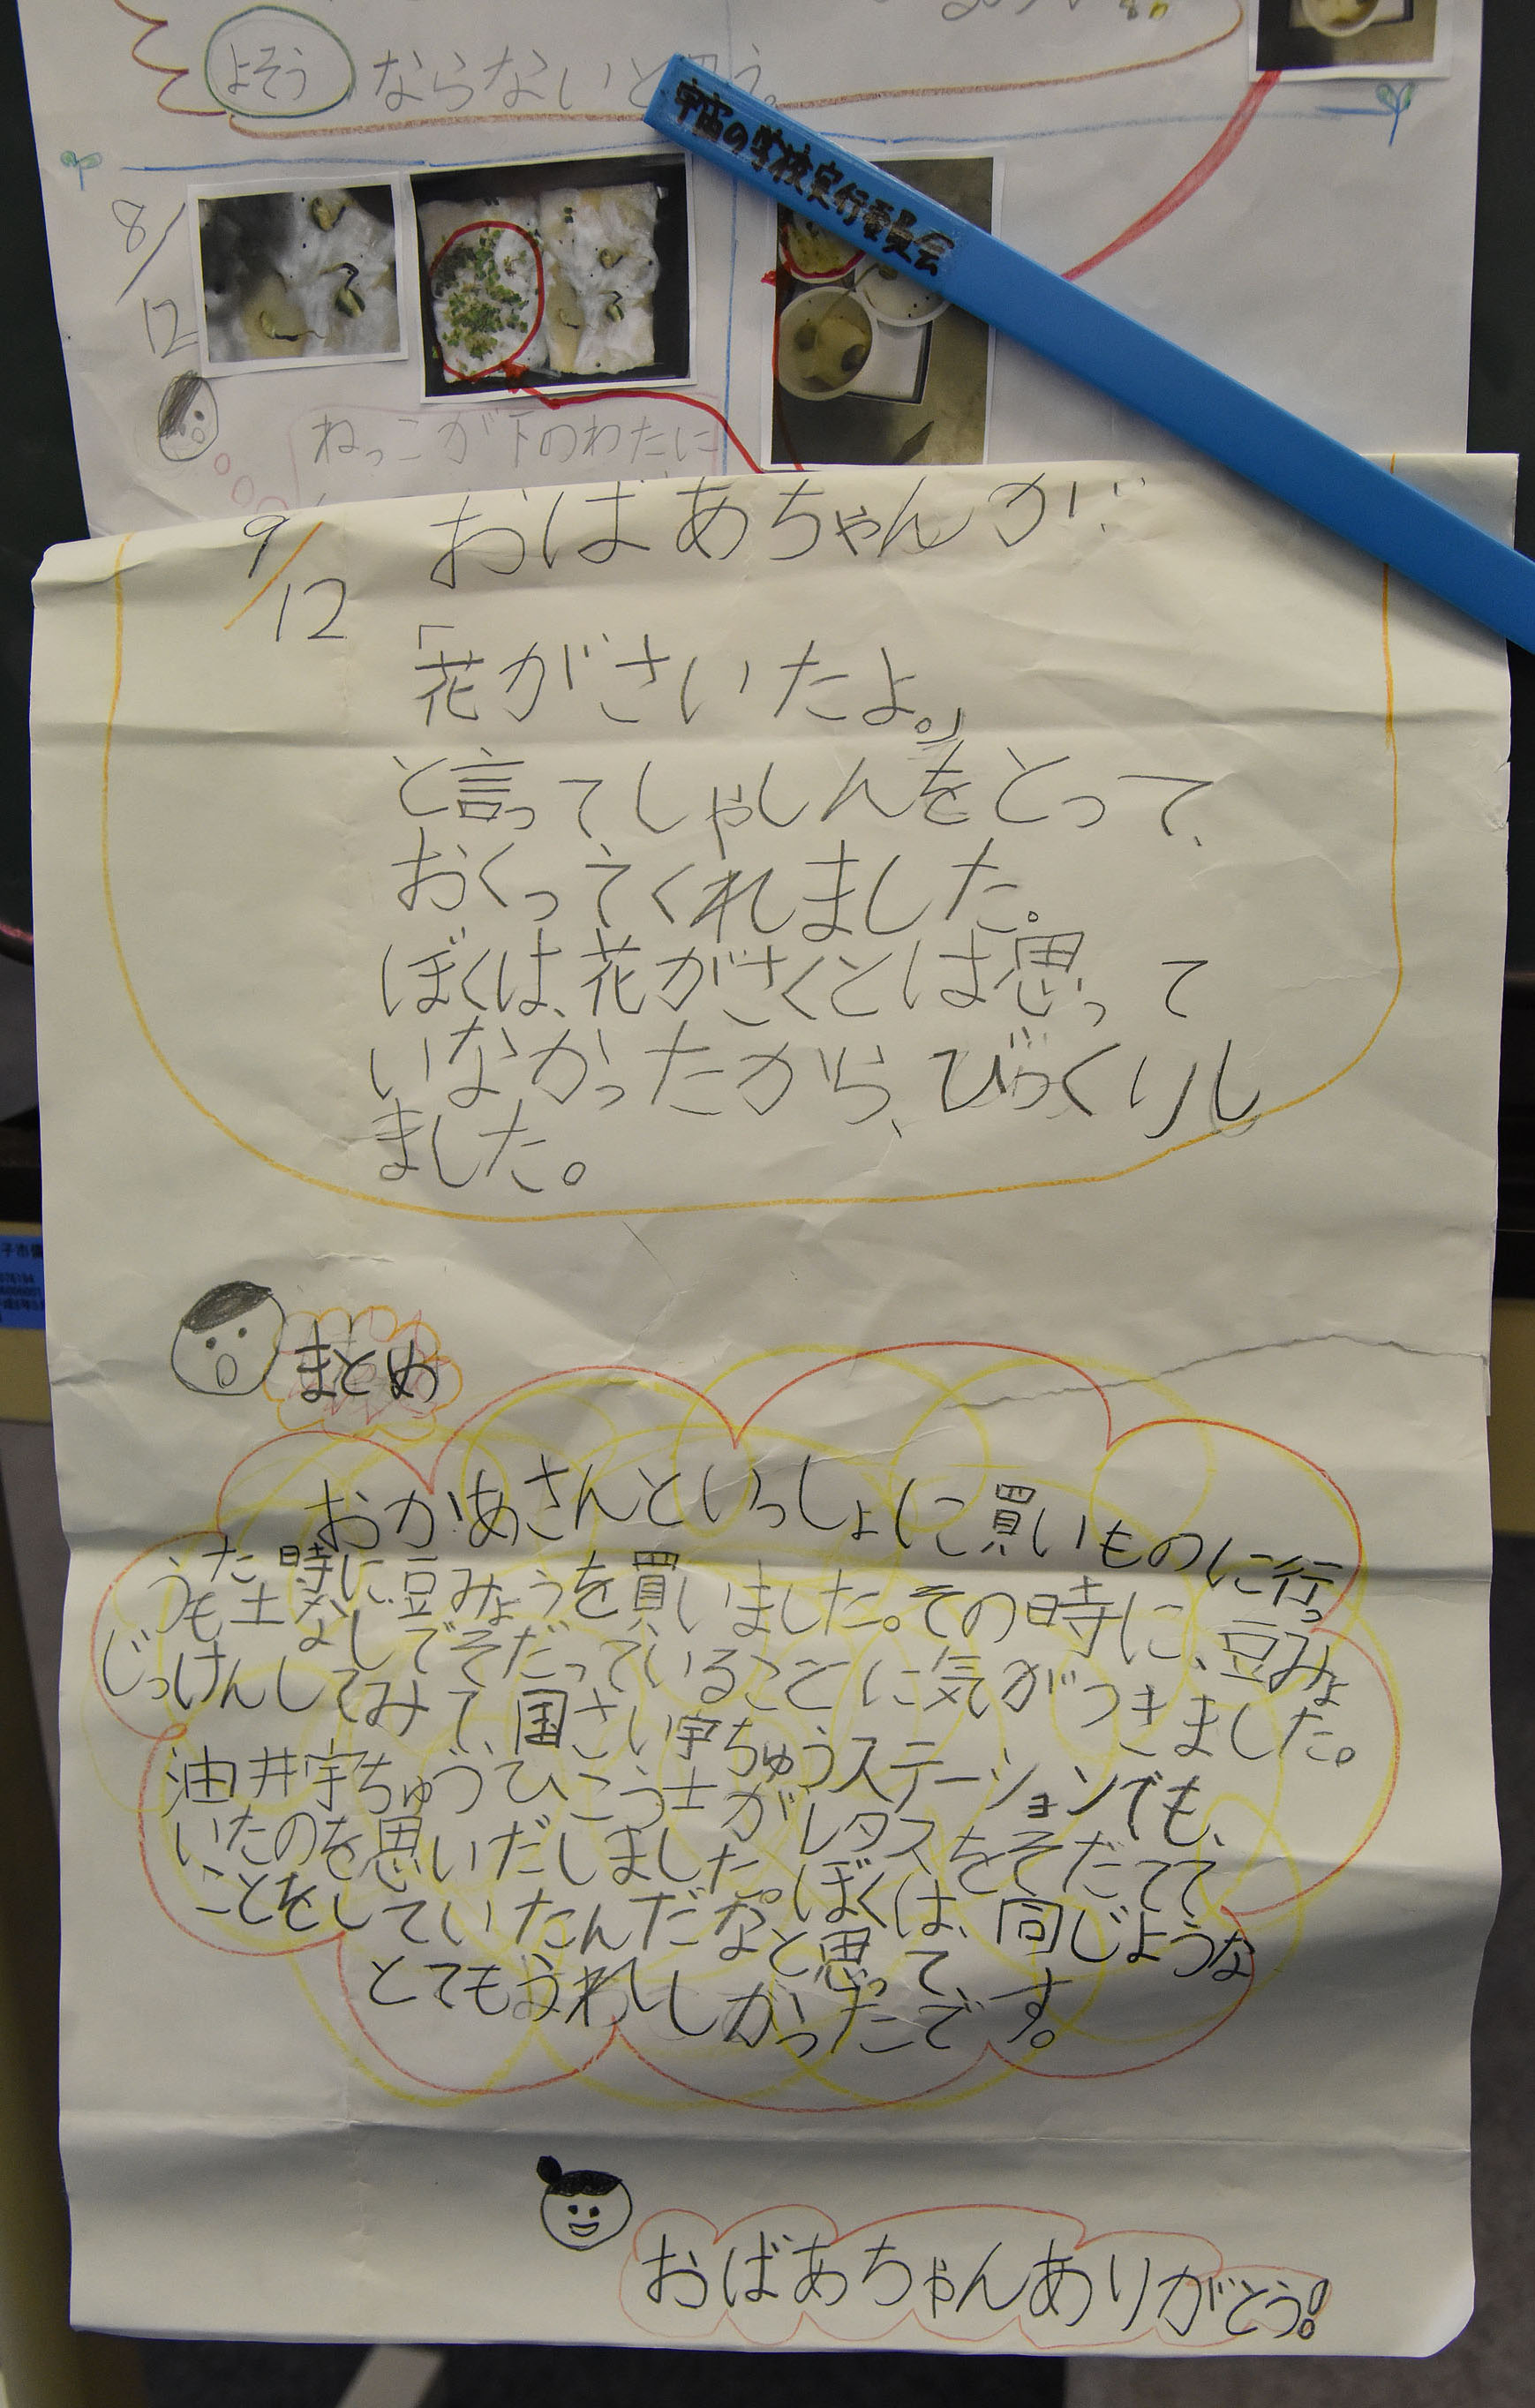 よそう
ならないと思う。
宇宙の学校実行委員会
8/12
ねっこが下のわたに
9/12
おばあちゃんが
「花がさいたよ。」
と言ってしゃしんをとって、
おくってくれました。
ぼくは、花がさくとは思って
いなかったから、びっくりし
ました。
まとめ
おかあさんといっしょに買いものに行っ
た時に、豆みょうを買いました。その時に、豆みょ
うも土なしでそだっていることに気がつきました。
じっけんしてみて、国さい宇ちゅうステーションでも、
油井宇ちゅうひこう士がレタスをそだてて
いたのを思いだしました。ぼくは、同じような
ことをしていたんだなと思って、
とてもうれしかったです。
おばあちゃんありがとう!